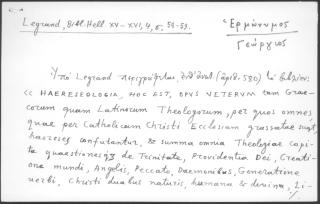 Legrand, Bibl. Hell. XV-XVI, 4, σ. 58-59.
Ἑρμώνυμος
Γεώργιος
Ὑπὸ Legrand περιγράφεται, (ἀριθ. 580) τὸ βιβλίον:
<< HAERESEOLOGIA, HOC EST, OPVS VETERVM tam Grae-
corum quam Latinorum Theologorum, per quos omnes
quae per Catholicam Christi Ecclesiam grassatae sunt,
haereses confutantur, & summa omnia Theologiae capi-
ta quaestionesq3 de Trinitate, Providentia Dei, Creati-
one mundi, Angelis, Peccato, Daemonibus, Generatione
verbi, Christi duabus naturis, humana & divina, Li-